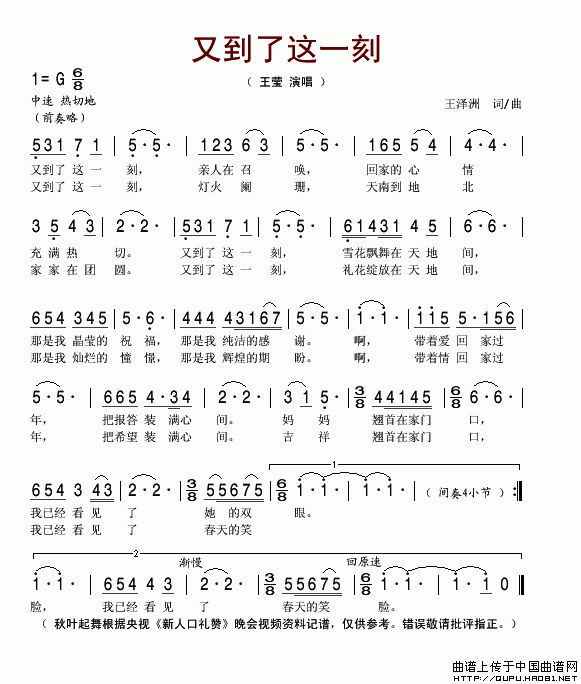 又到了这一刻
（ 王莹 演唱 ）
1= G 6/8
中速 热切地
（前奏略）
王泽洲 词/曲
531 7 1 | 5· 5· | 123 6 3 | 5· 5· | 165 5 4 | 4· 4· |
又到了 这 一 刻， 亲人在 召 唤， 回家的 心 情
又到了 这 一 刻， 灯火 阑 珊， 天南到 地 北
3 5 4 3 | 2· 2· | 531 7 1 | 5· 5· | 61431 4 5 | 6· 6· |
充 满 热 切。 又到了 这 一 刻， 雪花飘舞在 天 地 间，
家 家 在 团 圆。 又到了 这 一 刻， 礼花绽放在 天 地 间，
654 445 | 5· 6· | 444 43167 | 5· 5· | 1· 1· | 115 5·156 |
那是我 晶莹的 祝 福， 那是我 纯洁的感 谢。 啊， 带着爱 回 家过
那是我 灿烂的 憧 憬， 那是我 辉煌的期 盼。 啊， 带着情 回 家过
5· 5· | 665 4·34 | 2· 2· | 3 1 5· | 3/8 44145 | 6/8 6· 6· |
年， 把报答 装 满心 间。 妈 妈 翘首在家门 口，
年， 把希望 装 满心 间。 吉 祥 翘首在家门 口，
654 3 43 | 2· 2· | 3/8 55675 | 6/8 1· 1· | 1· 1· | （ 间奏4小节 ） :||
1
我已经 看 见 了 她 的双 眼。
我已经 看 见 了 春天的笑
2
渐慢
回原速
1· 1· | 654 4 3 | 2· 2· | 3/8 55675 | 6/8 1· 1· | 1· 1 0 ||
脸， 我已经 看 见 了 春天的笑 脸。
（ 秋叶起舞根据央视《新人口礼赞》晚会视频资料记谱，仅供参考。错误敬请批评指正。）
曲谱上传于中国曲谱网
HTTP://QUPU.HAO81.NET